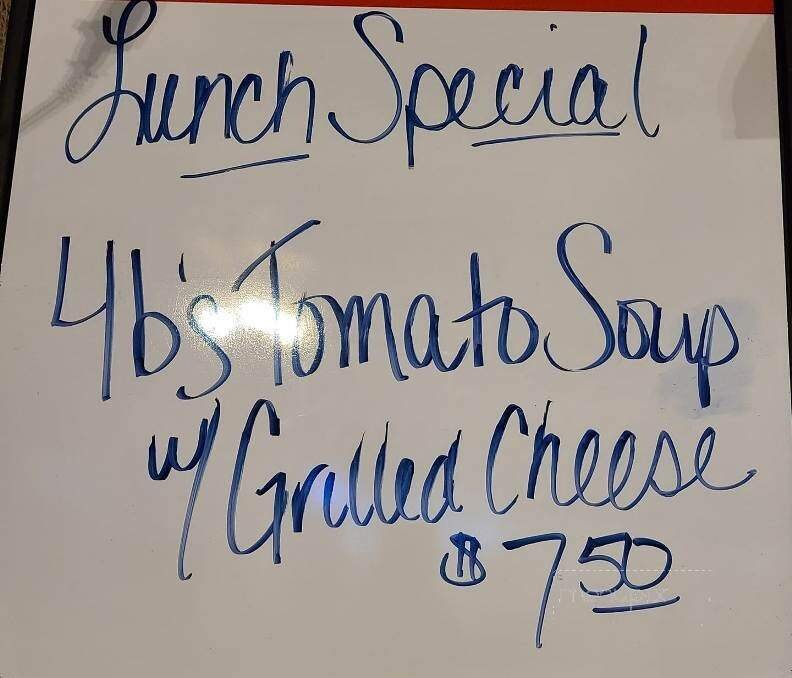 Lunch Special
4b's Tomato Soup
w/ Grilled Cheese
$7 50